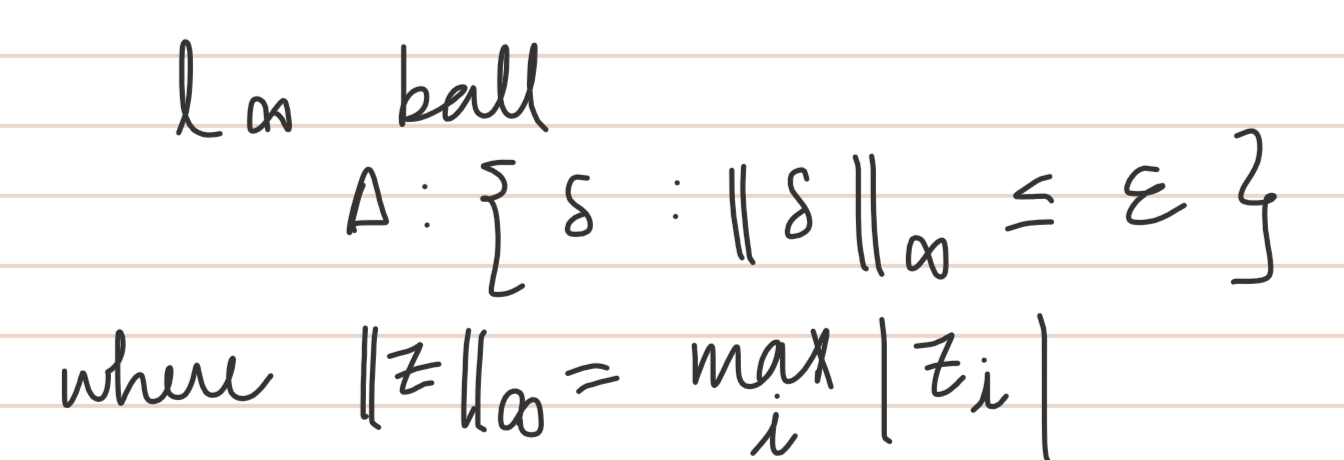 l∞ ball
Δ : { δ : ‖δ‖∞ ≤ ε }
where ‖z‖∞ = max_i |z_i|